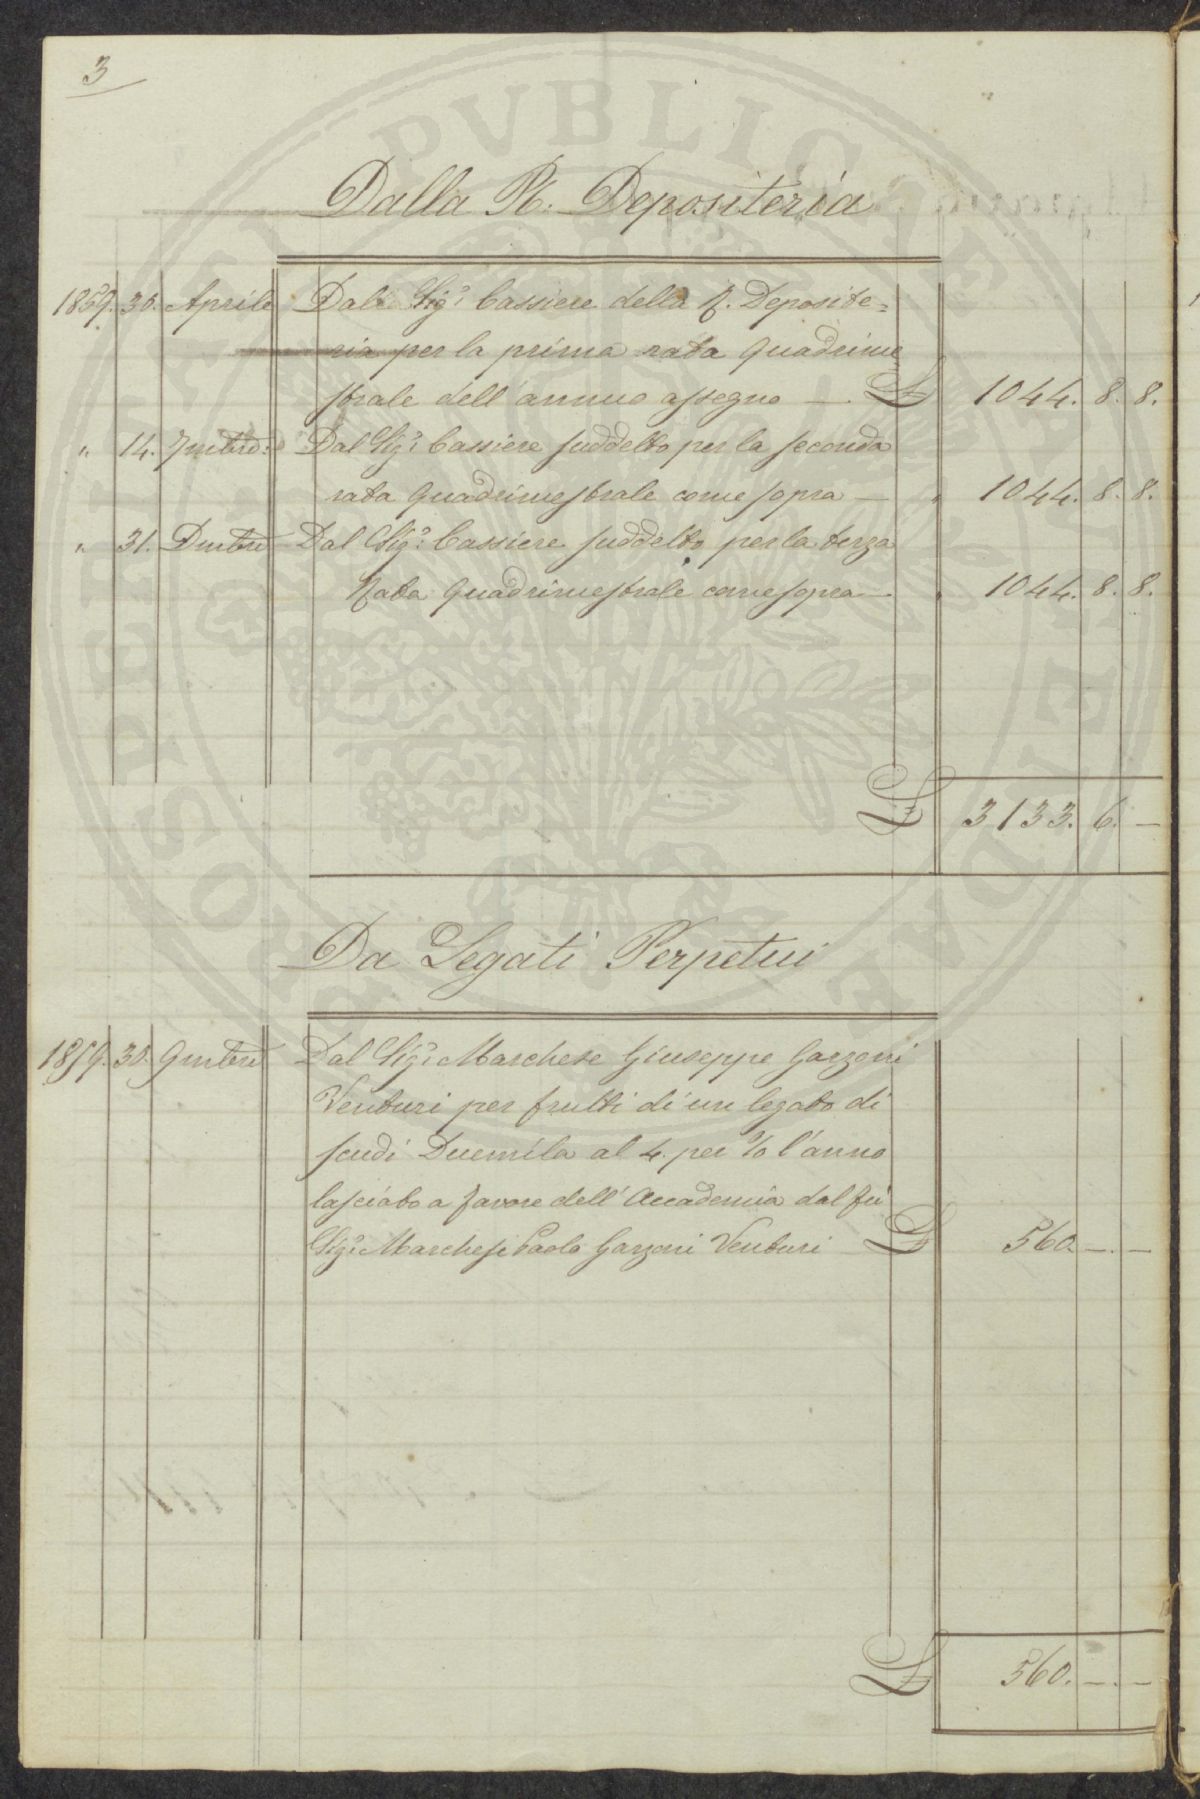 3
Dalla R. Depositeria
1859. 30. Aprile Dal Sig.r Cassiere della R. Deposite=
ria per la prima rata Quadrime
strale dell'annuo assegno —. £ 1044. 8. 8.
" 14. 7mbre: Dal Sig.r Cassiere suddetto per la seconda
rata Quadrimestrale come sopra — " 1044. 8. 8.
" 31. Dmbre Dal Sig.r Cassiere suddetto per la terza
Rata Quadrimestrale come sopra —. " 1044. 8. 8.
£ 3133. 6. —
Da Legati Perpetui
1859. 30. 9mbre Dal Sig.r Marchese Giuseppe Garzoni
Venturi per frutti di un legato di
scudi Duemila al 4. per % l'anno
lasciato a favore dell'Accademia dal fù
Sig.r Marchese Paolo Garzoni Venturi £ 560. —. —
£ 560. —. —
PVBLICAE